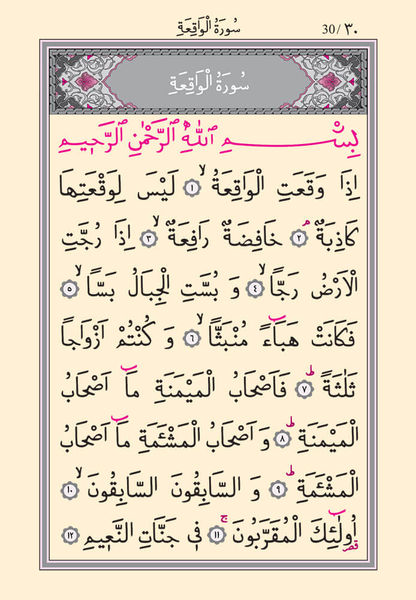 سُورَةُ الْوَاقِعَةِ 30/٣٠
سُورَةُ الْوَاقِعَةِ
بِسْمِ اللّٰهِ الرَّحْمٰنِ الرَّحِيمِ
اِذَا وَقَعَتِ الْوَاقِعَةُ ۙ ﴿١﴾ لَيْسَ لِوَقْعَتِهَا
كَاذِبَةٌ ۢ ﴿٢﴾ خَافِضَةٌ رَافِعَةٌ ۙ ﴿٣﴾ اِذَا رُجَّتِ
الْاَرْضُ رَجًّا ۙ ﴿٤﴾ وَ بُسَّتِ الْجِبَالُ بَسًّا ۙ ﴿٥﴾
فَكَانَتْ هَبَٓاءً مُنْبَثًّا ۙ ﴿٦﴾ وَ كُنْتُمْ اَزْوَاجًا
ثَلٰثَةً ۜ ﴿٧﴾ فَاَصْحَابُ الْمَيْمَنَةِ مَٓا اَصْحَابُ
الْمَيْمَنَةِ ۜ ﴿٨﴾ وَ اَصْحَابُ الْمَشْـَٔمَةِ مَٓا اَصْحَابُ
الْمَشْـَٔمَةِ ۜ ﴿٩﴾ وَ السَّابِقُونَ السَّابِقُونَ ۙ ﴿١٠﴾
اُو۬لٰٓئِكَ الْمُقَرَّبُونَ ۚ ﴿١١﴾ فِي جَنَّاتِ النَّعِيمِ ﴿١٢﴾